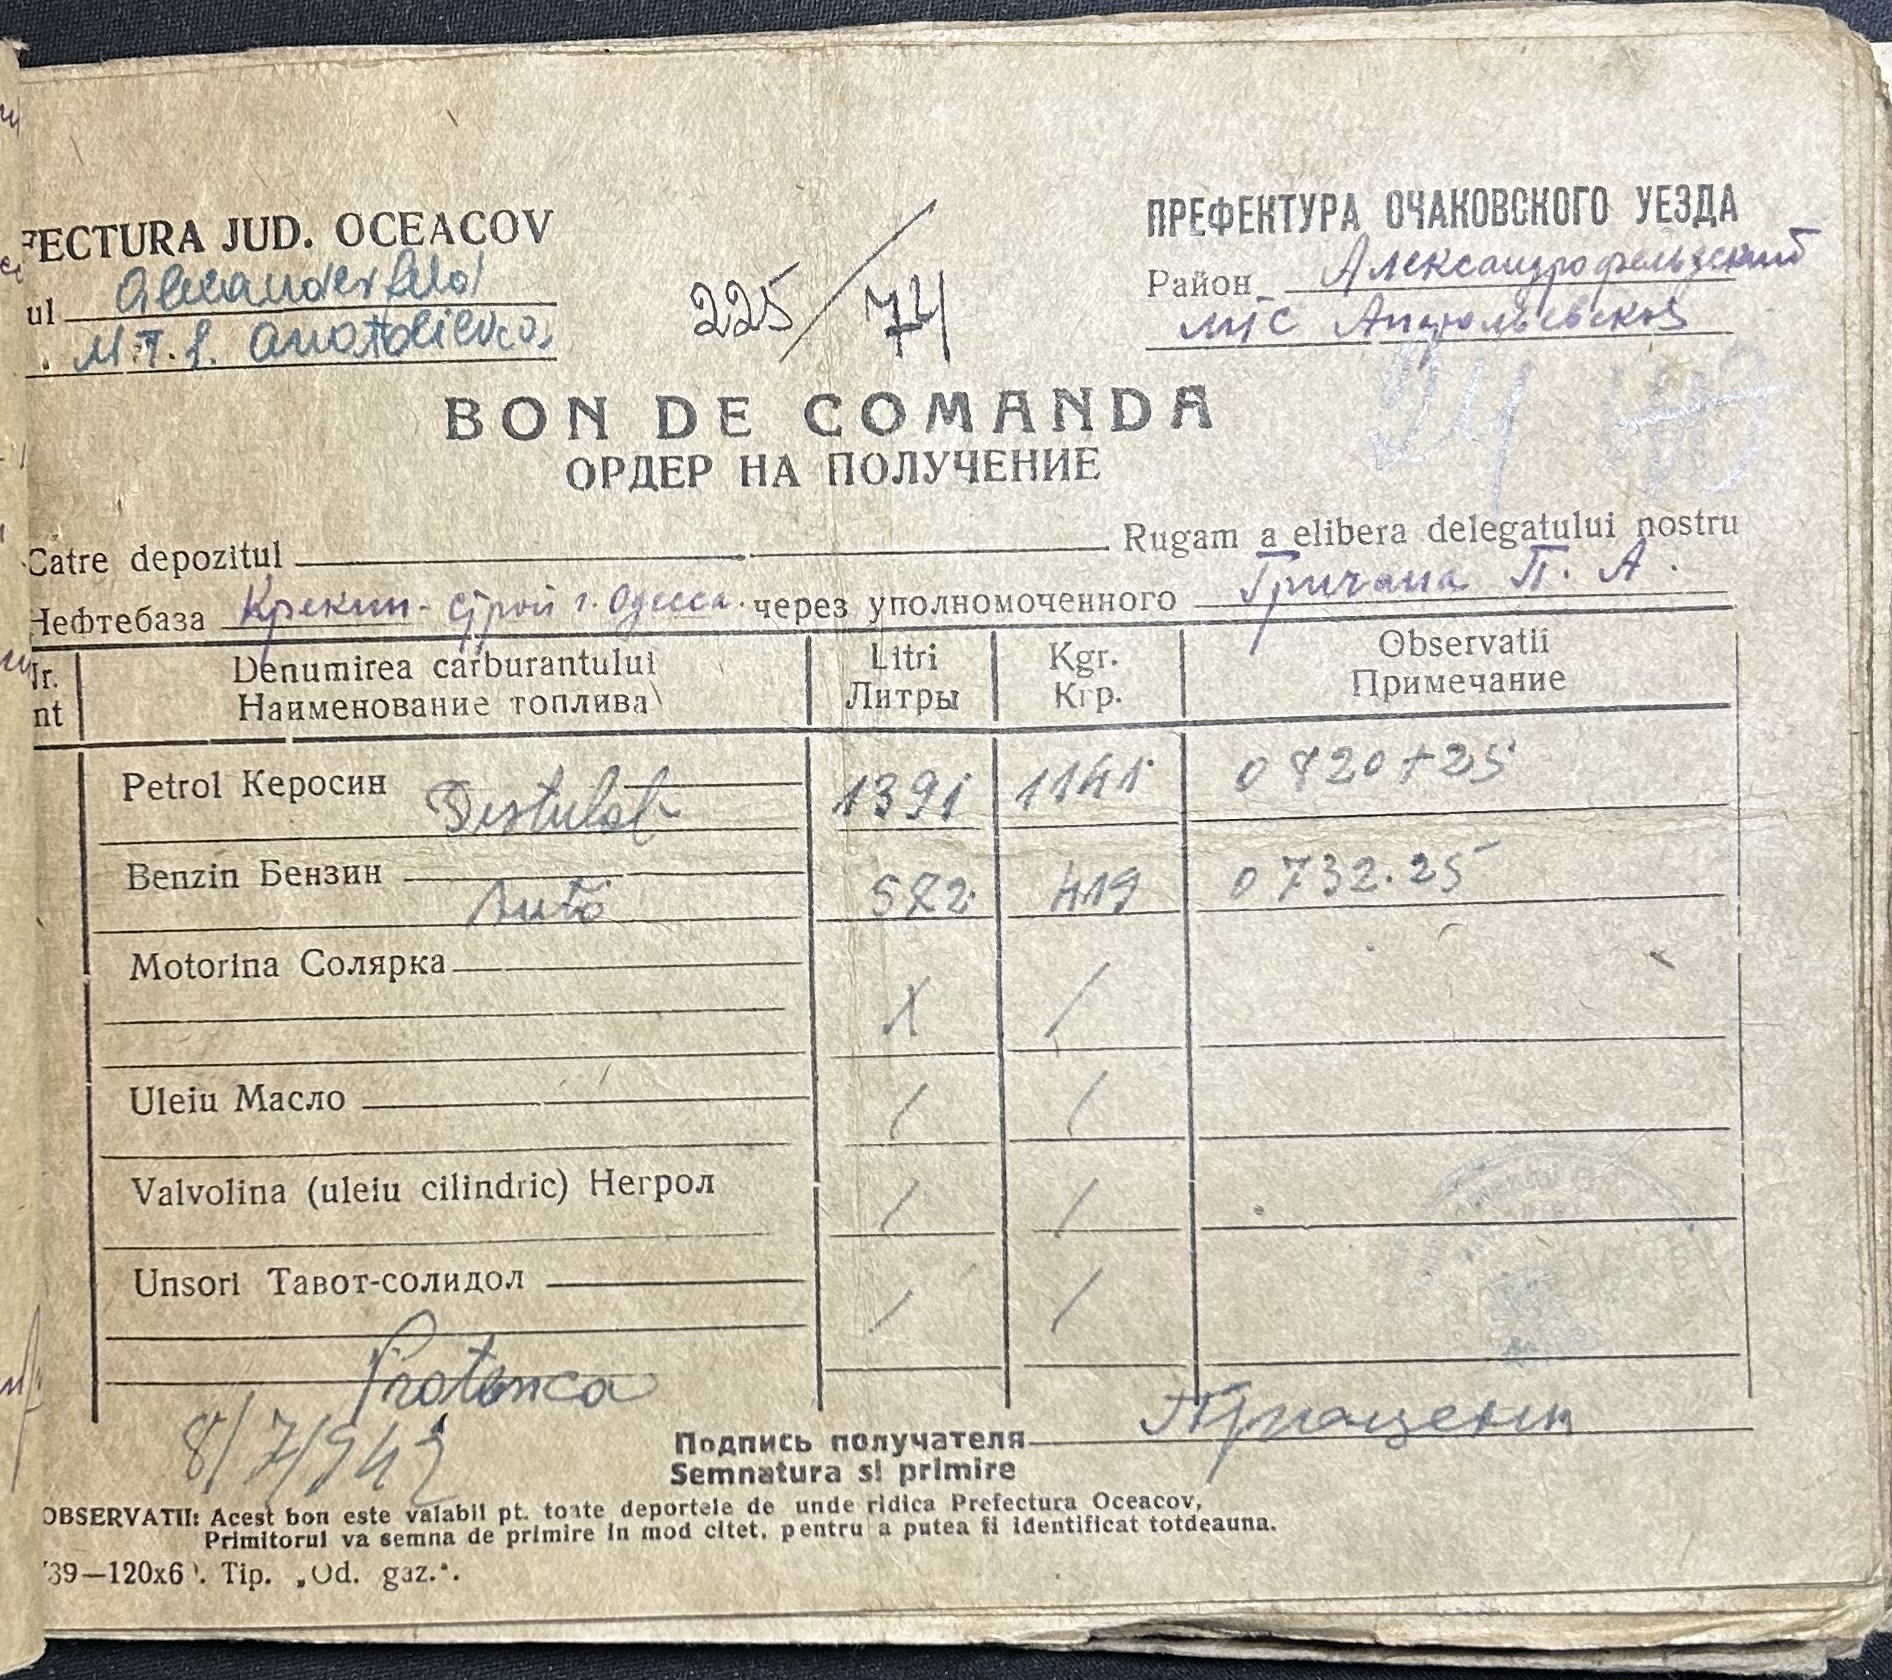 FECTURA JUD. OCEACOV
ul Alexanderfeld
M.T.S. Anatolievca
225/74
ПРЕФЕКТУРА ОЧАКОВСКОГО УЕЗДА
Район Александрофельдский
МТС Анатольевской
24
BON DE COMANDA
ОРДЕР НА ПОЛУЧЕНИЕ
Catre depozitul Rugam a elibera delegatului nostru
Нефтебаза Крекин-строй г. Одесса. через уполномоченного Гричана П. А.
Nr. Denumirea carburantului Litri Kgr. Observatii
nt Наименование топлива Литры Кгр. Примечание
Petrol Керосин Distulat 1391 1141 0 820+25
Benzin Бензин Auto 572 419 0 732.25
Motorina Солярка
Uleiu Масло / /
Valvolina (uleiu cilindric) Негрол / /
Unsori Тавот-солидол / /
8/7/942
Подпись получателя
Semnatura si primire
OBSERVATII: Acest bon este valabil pt. toate deportele de unde ridica Prefectura Oceacov,
Primitorul va semna de primire in mod citet, pentru a putea fi identificat totdeauna.
39—120x6 . Tip. „Od. gaz.".